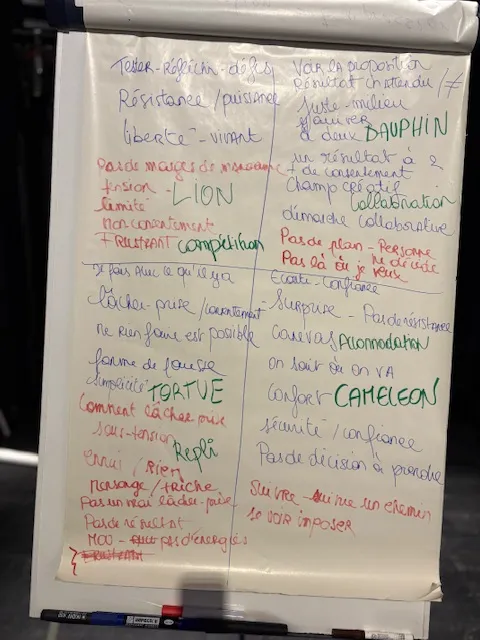 Tester - Réfléchir - défis
Résistance / puissance
liberté - VIVANT
Pas de marges de manoeuvre
tension - LION
limité
Non consentement
FRUSTRANT Compétition
Voir la proposition
Résultat inattendu / ≠
Juste-milieu
à deux DAUPHIN
un résultat à 2
+ de consentement
Champ créatif
Collaboration
démarche collaborative
Pas de plan - Personne
ne décide
Pas là où je veux
Je fais avec ce qu'il y a
Lâcher-prise / consentement
ne rien faire est possible
forme de fausse
simplicité TORTUE
Comment lâcher prise
sous-tension
Repli
ennui / Rien
mensonge / triche
Pas un vrai lâcher-prise
Pas de résultat
MOU - pas d'énergies
FRUSTRANT
Ecoute - Confiance
Surprise - Pas de résistance
Canevas Acomodation
on sait où on va
Confort CAMELEON
sécurité / confiance
Pas de décision à prendre
Suivre un chemin
se voir imposer